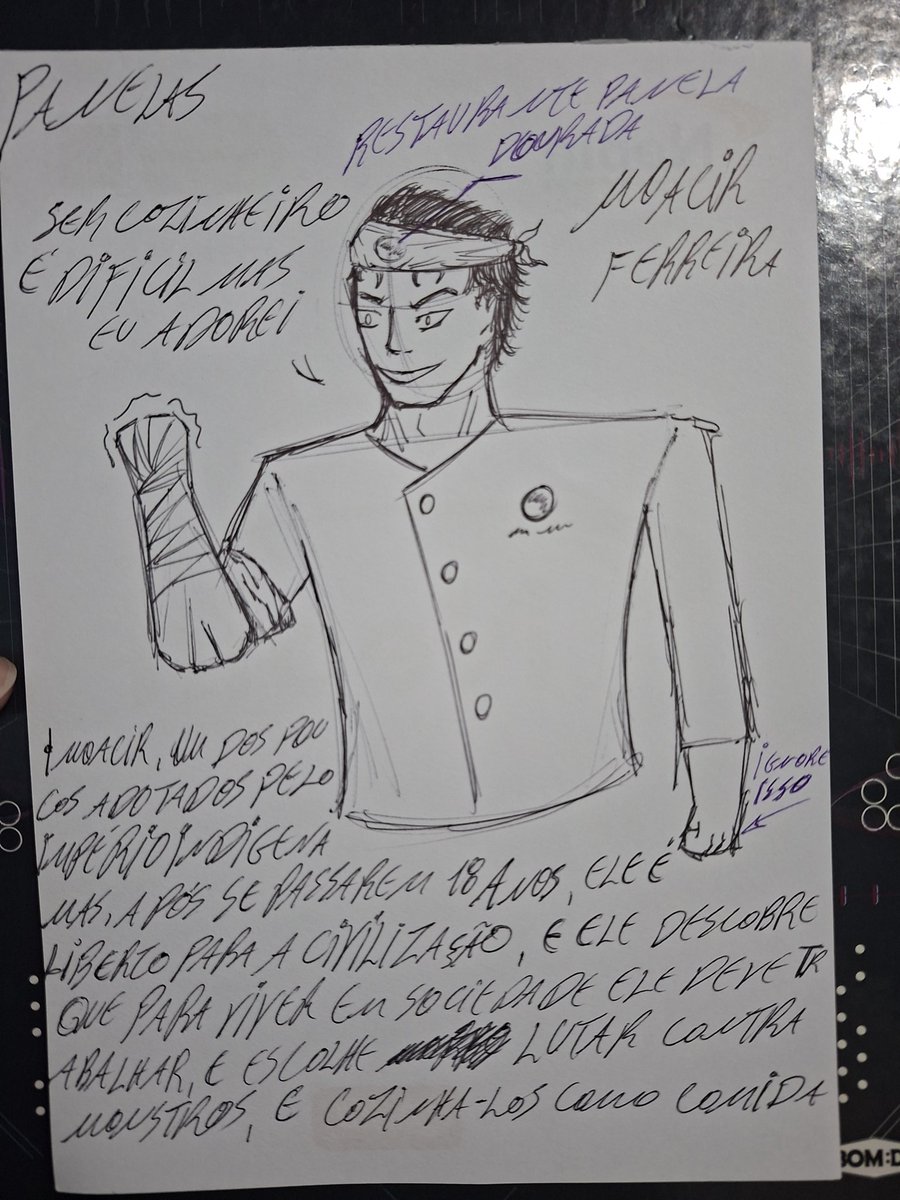 PANELAS
RESTAURANTE PANELA
DOURADA
SER COZINHEIRO
É DIFICIL MAS
EU ADOREI
MOACIR
FERREIRA
MOACIR, UM DOS POU
COS ADOTADOS PELO
IMPÉRIO INDIGENA
MAS, APÓS SE PASSAREM 18 ANOS, ELE É
LIBERTO PARA A CIVILIZAÇÃO, E ELE DESCOBRE
QUE PARA VIVER EM SOCIEDADE ELE DEVE TR
ABALHAR, E ESCOLHE LUTAR CONTRA
MONSTROS, E COZINHA-LOS COMO COMIDA
IGNORE
ISSO
BOM:D